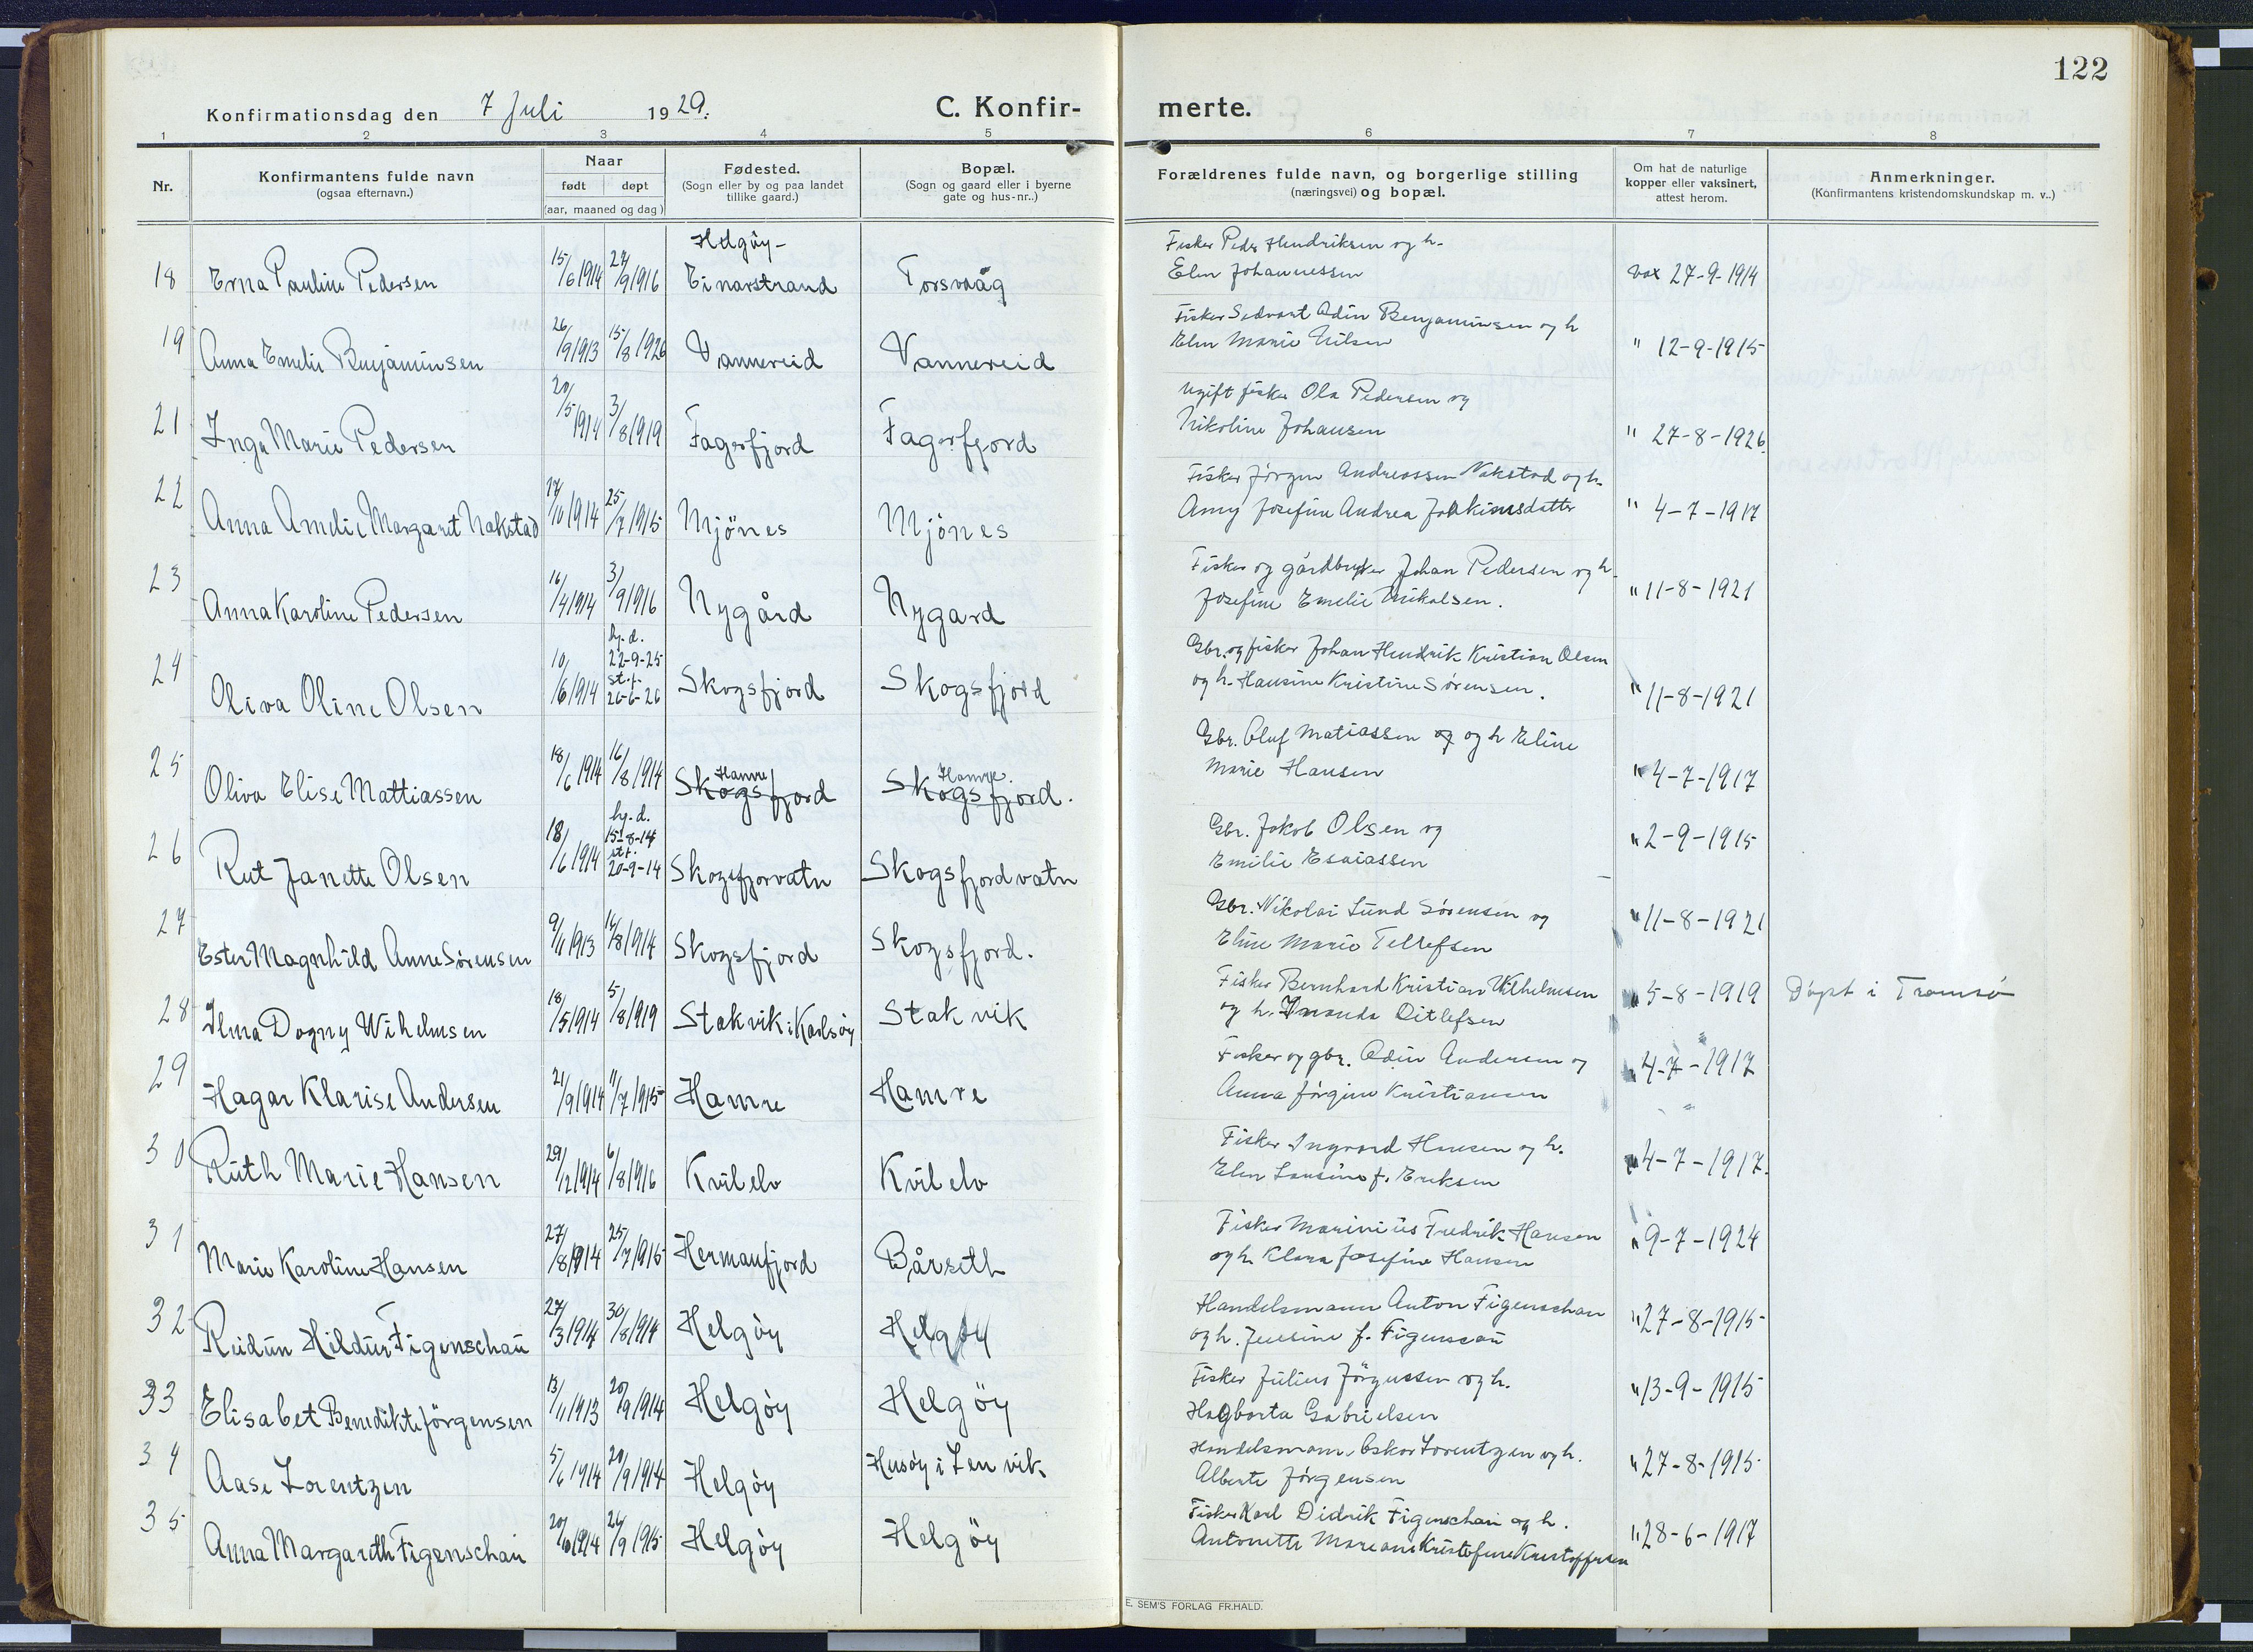 122
Konfirmationsdag den 7 Juli 1929.
C. Konfir-
merte.
1 2 3 4 5 6 7 8
Nr.
Konfirmantens fulde navn
(ogsaa efternavn.)
Naar
født døpt
(aar, maaned og dag)
Fødested.
(Sogn eller by og paa landet
tillike gaard.)
Bopæl.
(Sogn og gaard eller i byerne
gate og hus-nr..)
Forældrenes fulde navn, og borgerlige stilling
(næringsvei) og bopæl.
Om hat de naturlige
kopper eller vaksinert,
attest herom.
Anmerkninger.
(Konfirmantens kristendomskundskap m. v..)
Helgöy- Fisker Peder Hendriksen og h.
18 Erna Pauline Pedersen 15/6 1914 27/9 1916 Einarstrand Torsvåg Elen Johannessen vax 27-9-1914
Fisker Sedvart Odin Benjaminsen og h
19 Anna Emelie Benjaminsen 26/9 1913 15/8 1926 Vannereid Vannereid Elen Marie Nilsen " 12-9-1915
Ugift fisker Ola Pedersen og
21 Inga Marie Pedersen 20/5 1914 3/8 1919 Fagerfjord Fagerfjord Nikoline Johansen " 27-8-1926.
Fisker Jörgen Andreassen Nakstad og h.
22 Anna Amelie Margaret Nakstad 17/10 1914 25/7 1915 Mjönes Mjönes Amy Josefine Andrea Joakimsdatter " 4-7-1917
Fisker og gårdbruker Johan Pedersen og h.
23 Anna Karoline Pedersen 16/4 1914 3/9 1916 Nygård Nygard Josefine Emelie Nikolsen. " 11-8-1921
hj. d. 22-9-25
Gbr. og fisker Johan Hendrik Kristian Olsen
24 Oliva Oline Olsen 10/6 1914 st.f. 26-6-26 Skogsfjord Skogsfjord og h. Hansine Kristine Sörensen. " 11-8-1921
Gbr. Oluf Matiassen og og h Eline
Hamre Hamre.
25 Oliva Elise Mattiassen 18/6 1914 16/8 1914 Skogsfjord Skogsfjord. Marie Hansen " 4-7-1917
hj. d. 15-8-14
Gbr. Jakob Olsen og
26 Rut Janette Olsen 18/6 1914 st.f. 20-9-14 Skogsfjorvatn Skogsfjordvatn Emilie Esaiassen " 2-9-1915
Gbr. Nikolai Lund Sörensen og
27 Ester Magnhild Anne Sörensen 9/11 1913 16/8 1914 Skogsfjord Skogsfjord. Eline Marie Tellefsen " 11-8-1921
Fisker Bernhard Kristian Wilhelmsen
28 Ilma Dagny Wihelmsen 18/5 1914 5/8 1919 Stakvik i Karlsöy Stakvik og h. Amanda Ditlefsen " 5-8-1919 Döpt i Tromsö
Fisker og gbr. Odin Andersen og
29 Hagar Klarise Andersen 21/9 1914 11/7 1915 Hamre Hamre Anna Jörgine Kristiansen " 4-7-1917
Fisker Ingvard Hansen og h.
30 Ruth Marie Hansen 29/12 1914 6/8 1916 Kvilelv Kvilelv Elen Lausine f. Eriksen " 4-7-1917.
Fisker Marinius Fredrik Hansen
31 Marie Karoline Hansen 27/8 1914 25/7 1915 Hermanfjord Bårseth og h. Klara Josefine Hansen " 9-7-1924
Handelsmann Anton Figenschau
32 Reidun Hildur Figenschau 27/3 1914 30/8 1914 Helgöy Helgöy og h. Jensine f. Figenscau " 27-8-1915
Fisker Julius Jörgensen og h.
33 Elisabet Benedikte Jörgensen 13/11 1913 20/9 1914 Helgöy Helgöy Hagbarta Gabrielsen " 13-9-1915
Handelsmann Oskar Lorentzen og h.
34 Aase Lorentzen 5/6 1914 20/9 1914 Helgöy Husöy i Lenvik Alberte Jörgensen " 27-8-1915
Fisker Karl Didrik Figenschau og h.
35 Anna Margareth Figenschau 20/10 1914 26/9 1915 Helgöy Helgöy Antonette Mareane Kristofine Kristoffersen " 28-6-1917
E. SEM'S FORLAG FR.HALD.